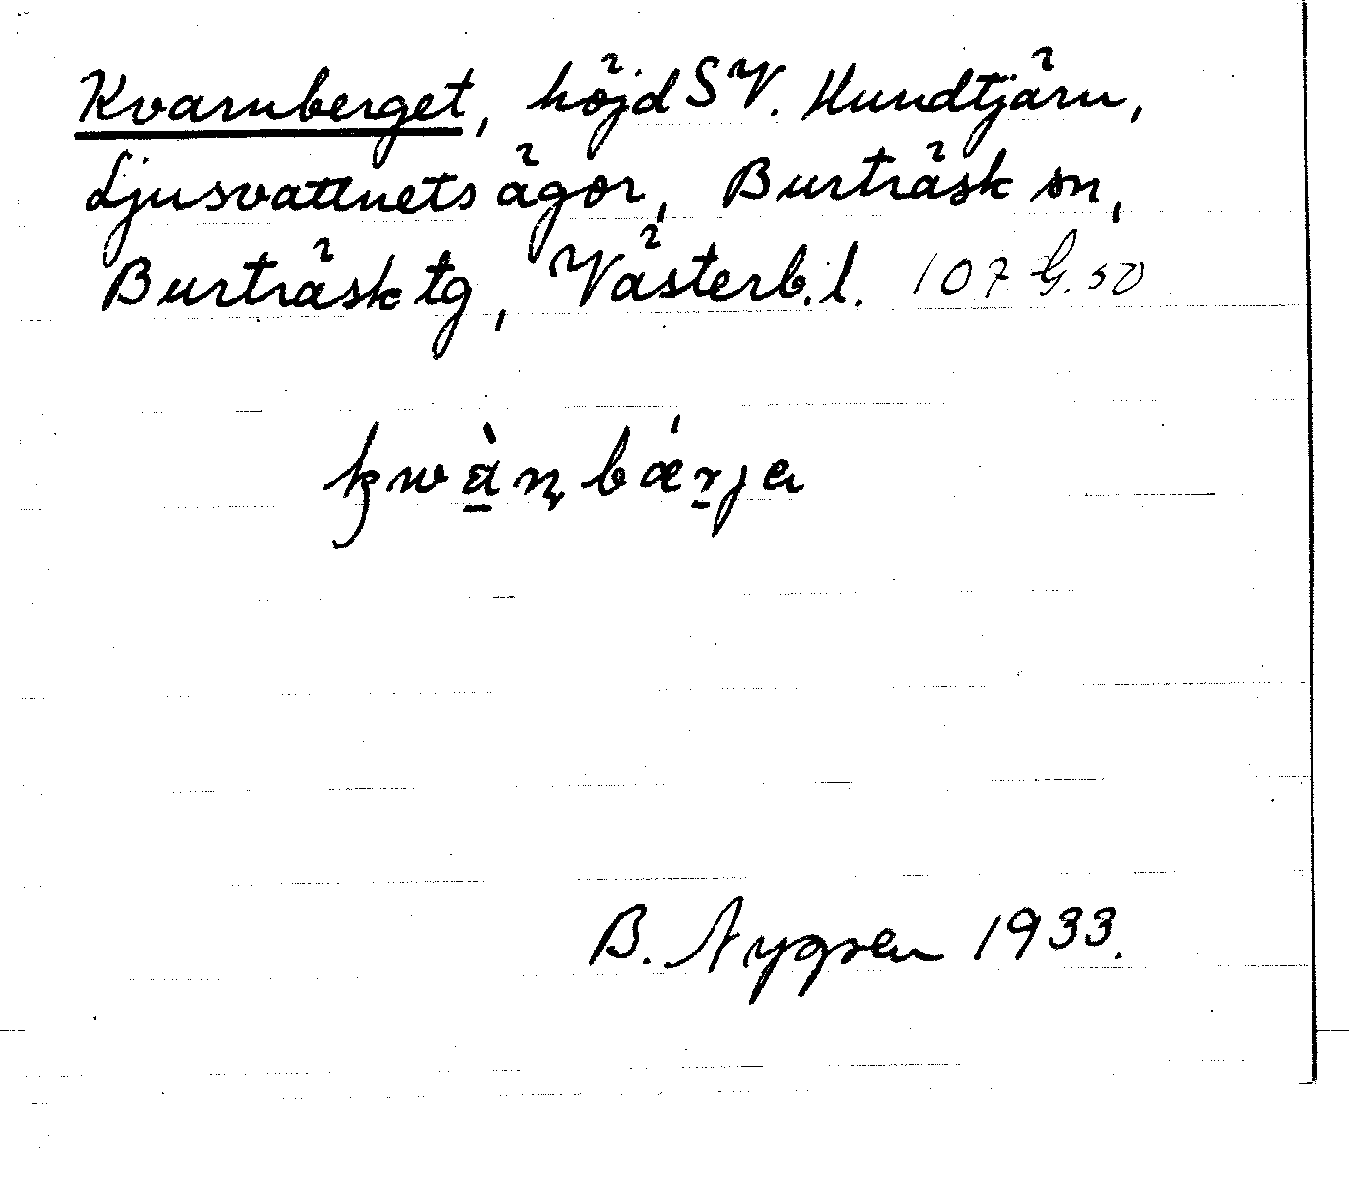 Kvarnberget, höjd SV. Hundtjärn,
Ljusvattnets ägor, Burträsk sn,
Burträsk tg, Västerb. l. 107 G. 50
kwàṇbǽrja
B. Nygren 1933.